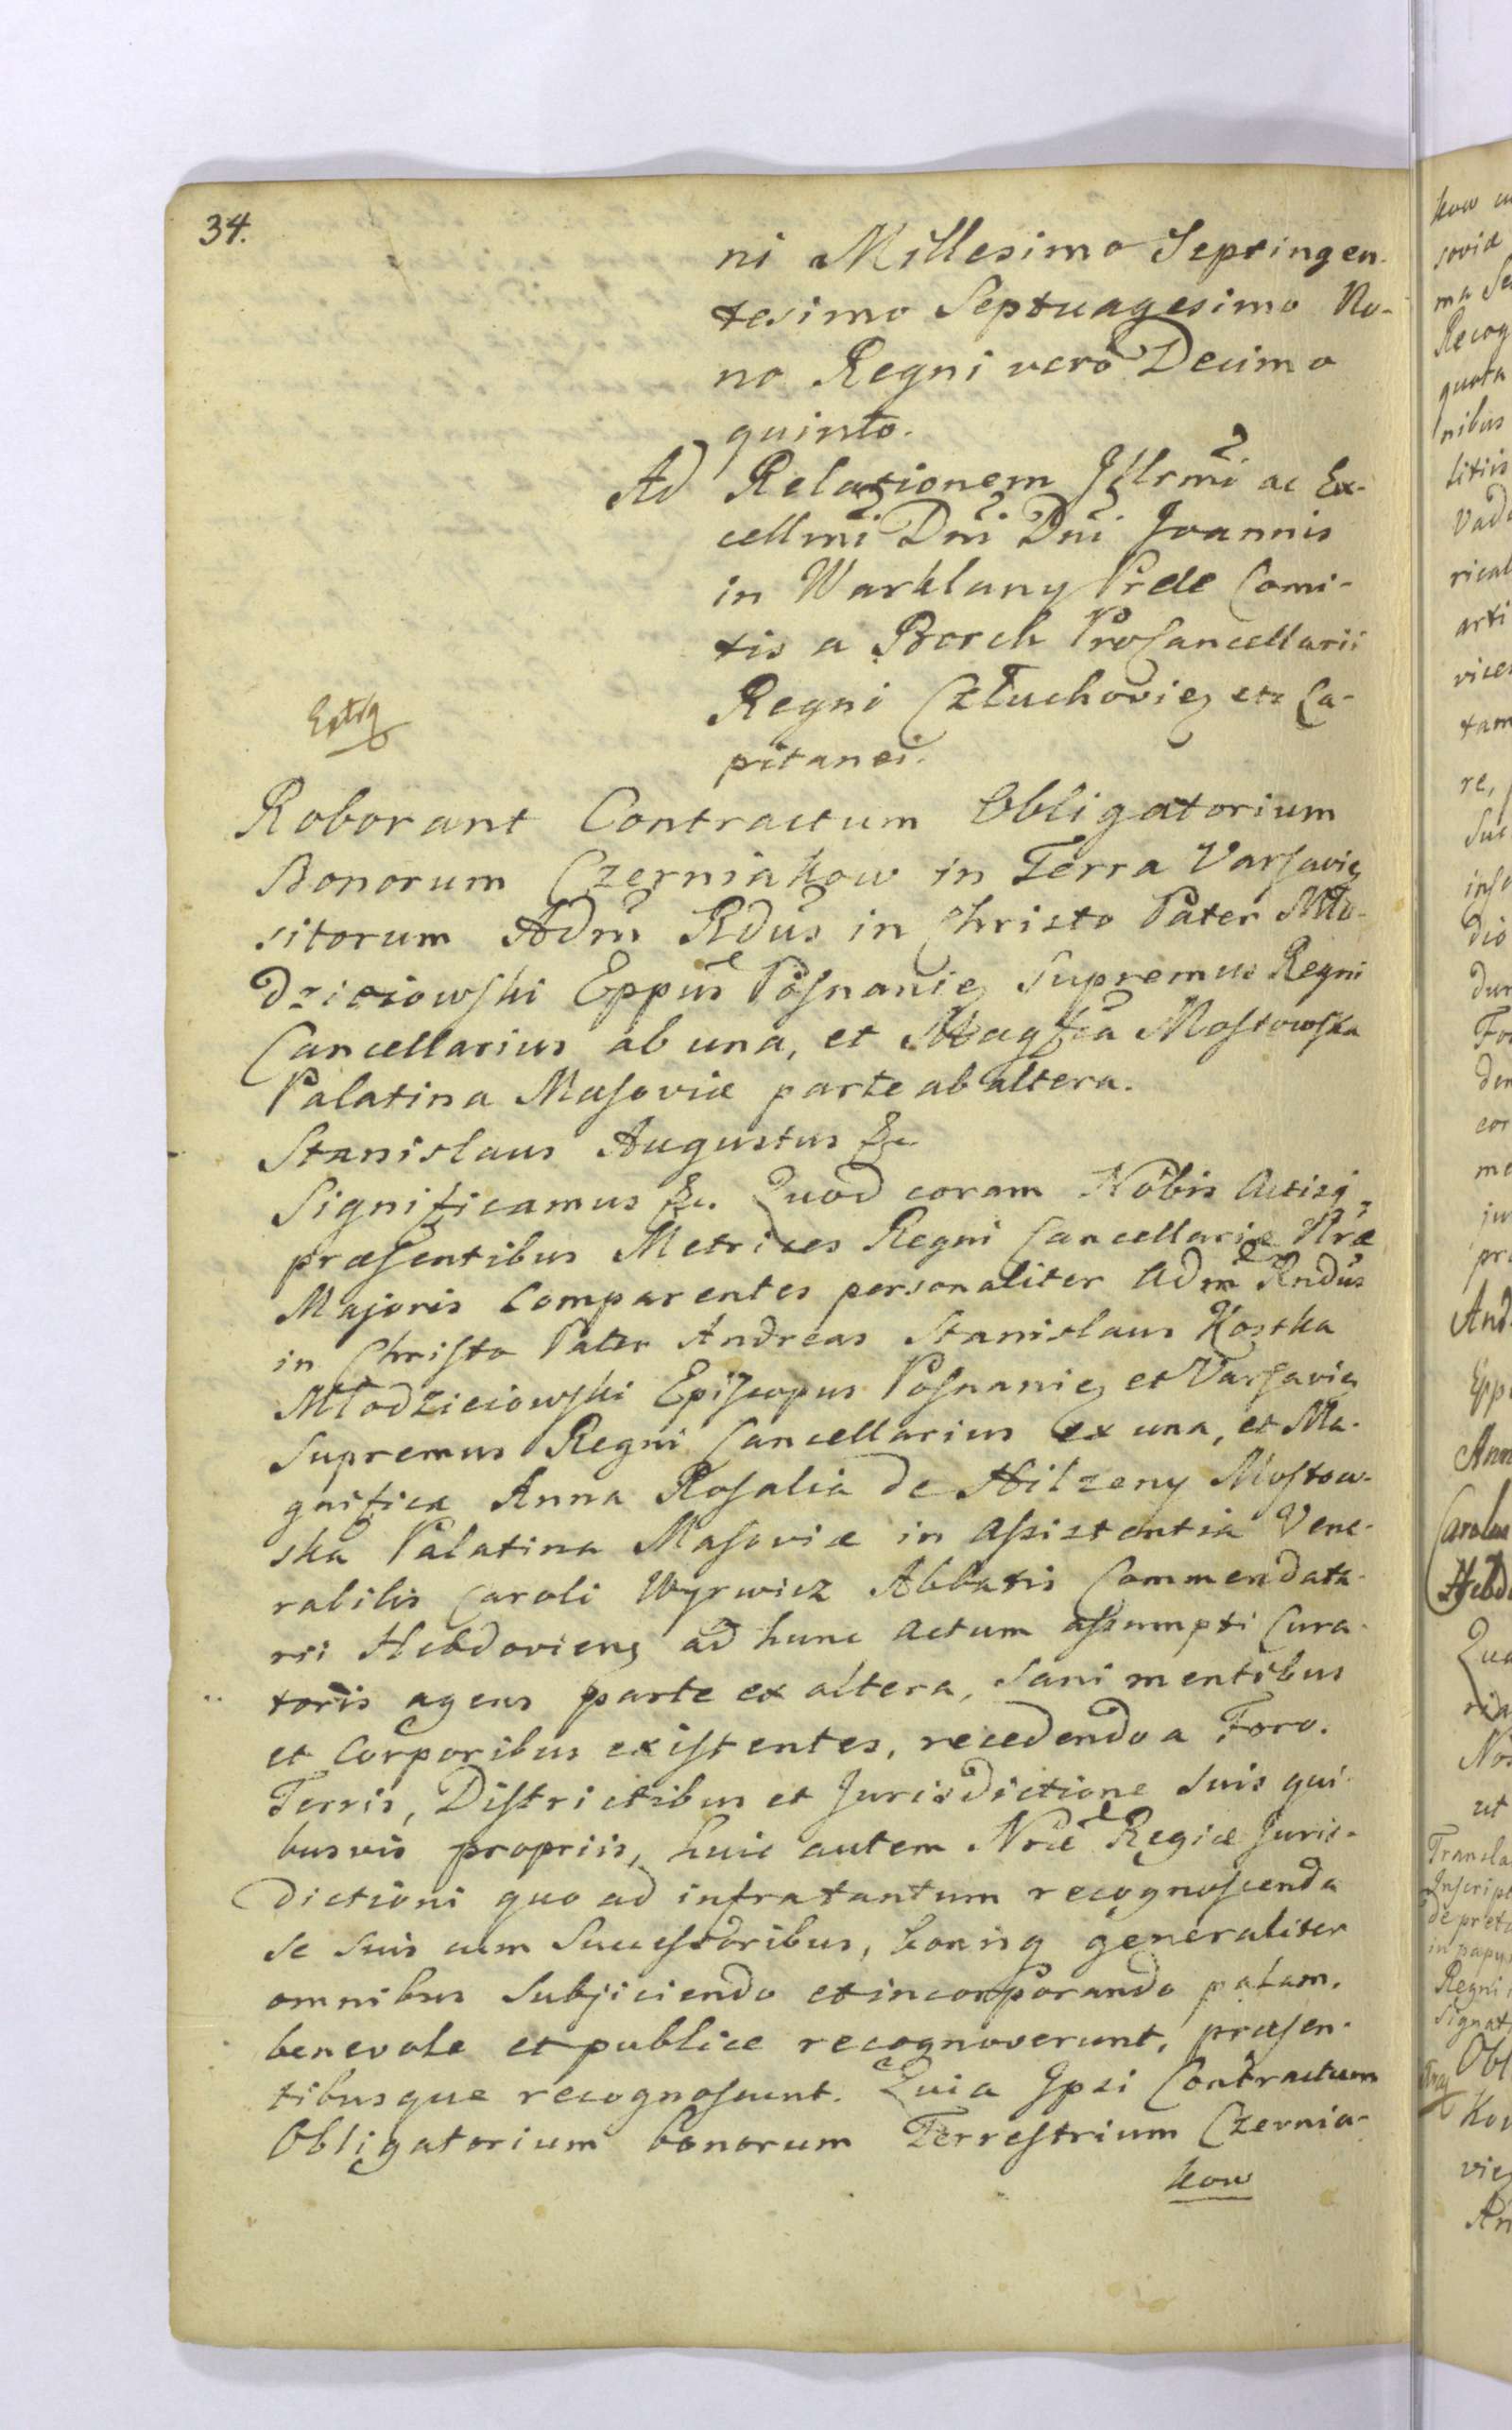 34.
ni Millesimo Septingen-
tesimo Septuagesimo No-
no Regni verò Decimo
quinto.
Ad Relationem Illrmi ac Ex-
cellmi Dni Dni Joannis
in Warklany Prele Comi-
tis a Borch ProCancellarii
Regni Człuchovię etc Ca-
pitanei.
Roborant Contractum Obligatorium
Bonorum Czerniakow in Terra Varsavię
sitorum Adm Rdus in Christo Pater Mło-
dzieiowski Eppus Posnanię Supremus Regni
Cancellarius ab una, et Magfca Mostowska
Palatina Masoviæ parte ab altera.
Stanislaus Augustus &c
Significamus &c. Quod coram Nobis Actisq
præsentibus Metrices Regni Cancellariæ Nræ
Majoris Comparentes personaliter Adm Rndus
in Christo Pater Andreas Stanislaus Kostka
Młodzieiowski Episcopus Posnanię et Varsavię
Supremus Regni Cancellarius ex una, et Ma-
gnifica Anna Rosalia de Hilzeny Mostow-
ska Palatina Masoviæ in assistentia Vene-
rabilis Caroli Wyrwicz Abbatis Commendata-
rii Hebdoviens ad hunc actum assumpti Cura-
toris agens parte ex altera, sani mentibus
et Corporibus existentes, recedendo a Foro.
Terris, Districtibus et Jurisdictione suis qui-
busvis propriis, huic autem Nræ Regiæ Juris-
dictioni quo ad infratantum recognoscenda
se suis cum Successoribus, bonisq generaliter
omnibus Subjiciendo et incorporando palam.
benevole et publice recognoverunt, præsen-
tibusque recognoscunt. Quia Ipsi Contractum
Obligatorium bonorum Terrestrium Czernia-
kow